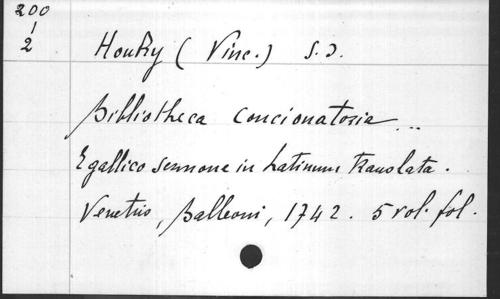 200
1
2
Houdry (Vinc.) S.J.
Bibliotheca concionatoria ...
E gallico sermone in Latinum translata.
Venetiis, Balleoni, 1742. 5 vol. fol.